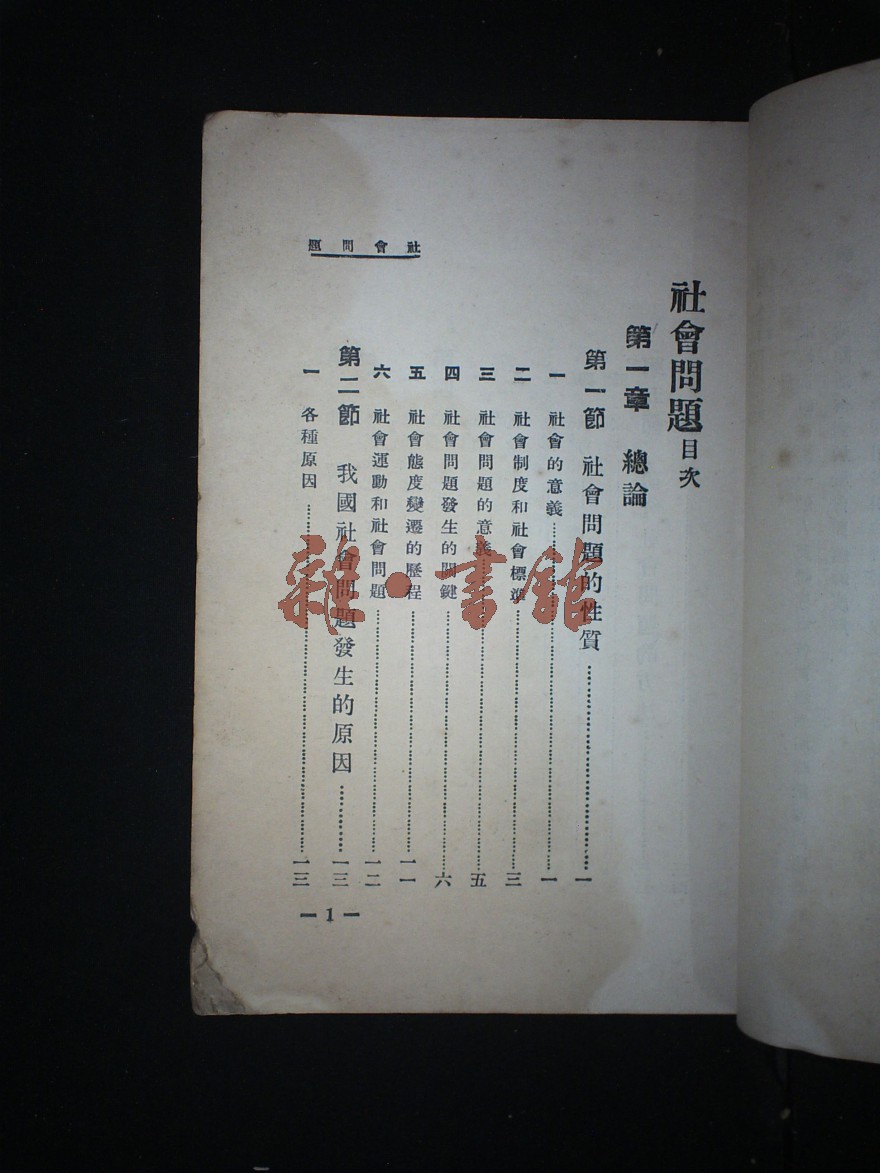 社會問題
社會問題目次
第一章 總論
第一節 社會問題的性質……一
一 社會的意義……一
二 社會制度和社會標準……三
三 社會問題的意義……五
四 社會問題發生的關鍵……六
五 社會態度變遷的歷程……一一
六 社會運動和社會問題……一二
第二節 我國社會問題發生的原因……一三
一 各種原因……一三
— 1 —
雜·書館